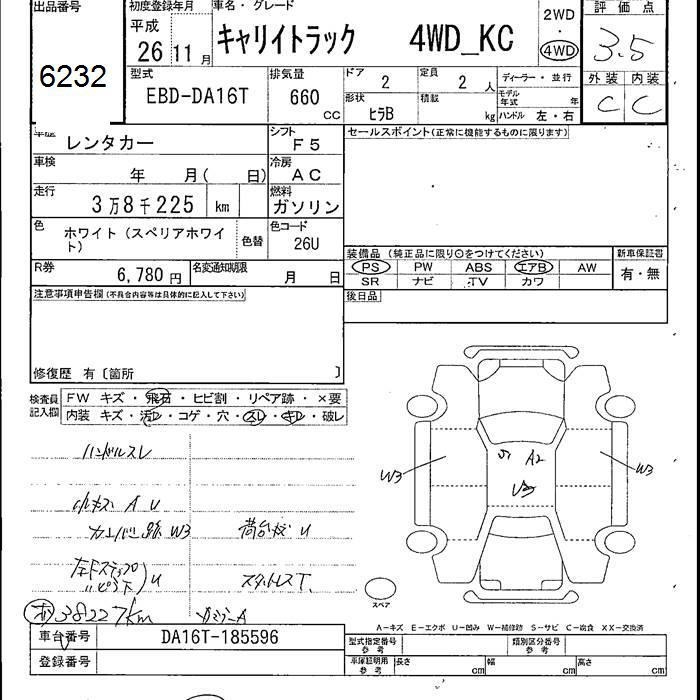 出品番号
6232
初度登録年月
平成
26 11 月
車名・グレード
キャリイトラック 4WD_KC
2WD
4WD
評価点
3.5
外装 内装
C C
型式
EBD-DA16T
排気量
660
CC
ドア
2
定員
2 人
形状
ヒラB
積載
kg
ディーラー・並行
モデル年式 年
ハンドル 左・右
レンタカー
シフト
F5
車検
年 月( 日)
冷房
AC
走行
3万8千225 km
燃料
ガソリン
色
ホワイト(スペリアホワイ
ト)
色替
色コード
26U
R券
6,780 円
名変通知期限
月 日
注意事項申告欄(不具合内容等は具体的に記入して下さい)
修復歴 有〔箇所 〕
セールスポイント(正常に機能するものに限ります)
装備品(純正品に限り○をつけてください)
新車保証書
有・無
PS PW ABS エアB AW
SR ナビ TV カワ
後日品
検査員
記入欄
FW キズ・飛石・ヒビ割・リペア跡・×要
内装 キズ・汚レ・コゲ・穴・スレ・キレ・破レ
ハンドルスレ
小キズ A U
カバー跡 W3 荷台 U
左Fステップ
U
スタッドレスT.
38227km
W3
A2
W3
スペア
A-キズ E-エクボ U-凹み W-補修跡 S-サビ C-腐食 XX-交換済
車台番号
DA16T-185596
登録番号
型式指定番号
参考
類別区分番号
参考
車庫証明用
参考
長さ cm
幅 cm
高さ cm